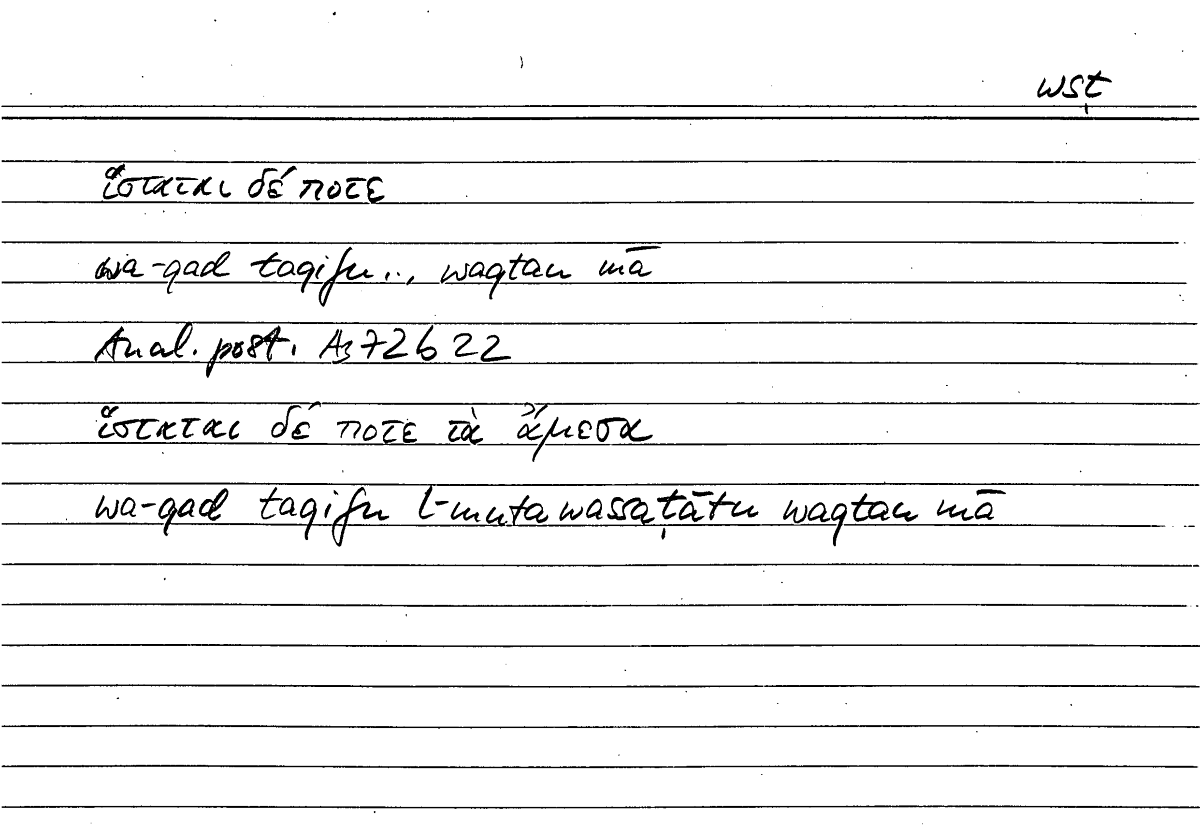 wsṭ
ἵσταται δέ ποτε
wa-qad taqifu.., waqtan mā
Anal. post. A3 72b22
ἵσταται δέ ποτε τὰ ἄμεσα
wa-qad taqifu l-mutawassaṭātu waqtan mā